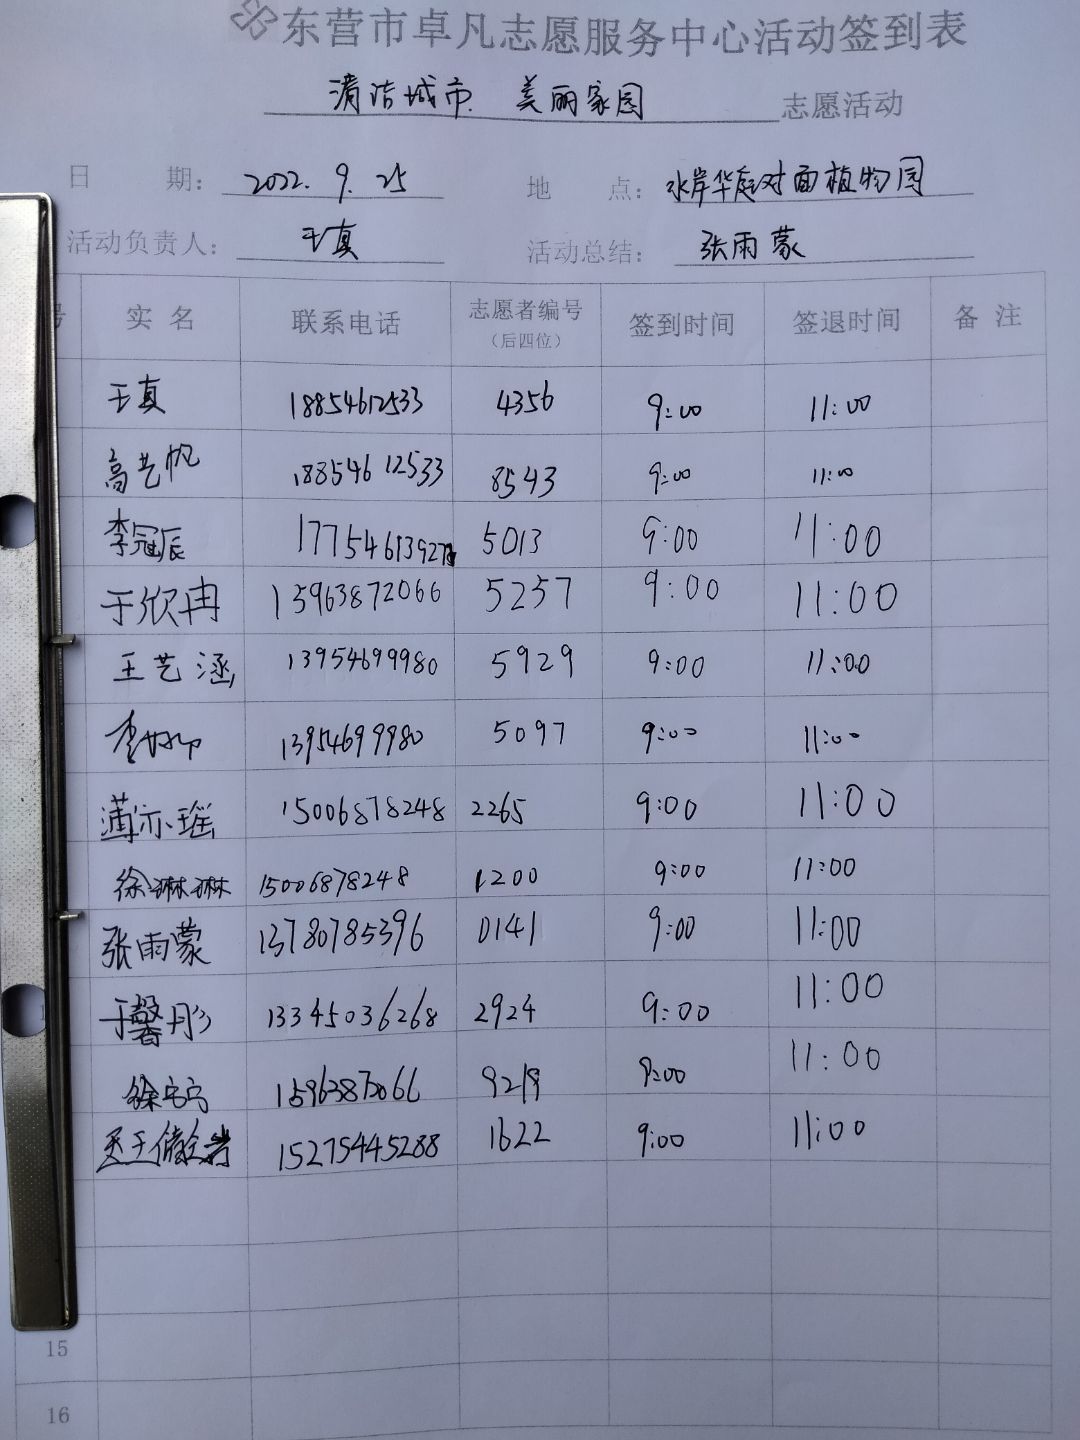 东营市卓凡志愿服务中心活动签到表
清洁城市 美丽家园 志愿活动
日 期: 2022.9.25 地 点: 水岸华庭对面植物园
活动负责人: 于真 活动总结: 张雨蒙
号 实 名 联系电话 志愿者编号 (后四位) 签到时间 签退时间 备 注
于真 18854612533 4356 9:00 11:00
高艺帆 18854612533 8543 9:00 11:00
李冠辰 17754613927 5013 9:00 11:00
于欣冉 15963872066 5257 9:00 11:00
王艺涵 13954699980 5929 9:00 11:00
李 13954699980 5097 9:00 11:00
蒲亦瑶 15006878248 2265 9:00 11:00
徐琳琳 15006878248 1200 9:00 11:00
张雨蒙 13780785396 0141 9:00 11:00
于馨彤 13345036268 2924 9:00 11:00
徐 15963872066 9219 9:00 11:00
15275445288 1622 9:00 11:00
15
16